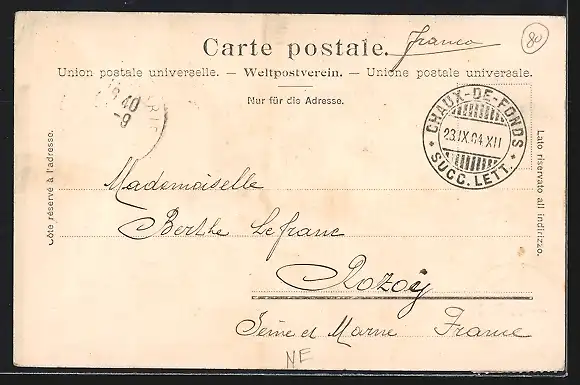 Carte postale. franco
80
Union postale universelle. — Weltpostverein. — Unione postale universale.
Nur für die Adresse.
40
-9
CHAUX-DE-FONDS
23.IX.04 XII
* SUCC. LETT. *
Côté réservé à l'adresse.
Lato riservato all indirizzo.
Mademoiselle
Berthe Lefranc
Rozoy
Seine et Marne France
NE